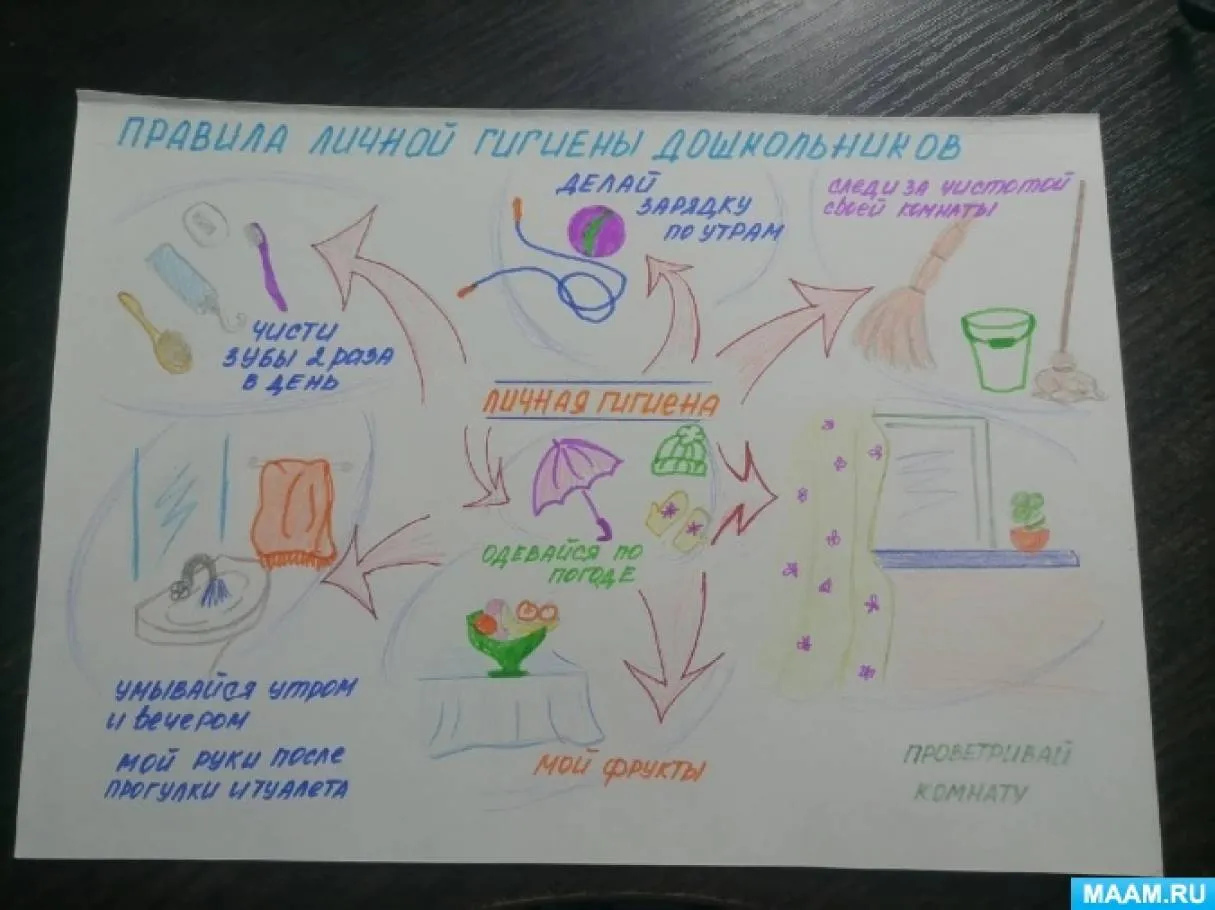 ПРАВИЛА ЛИЧНОЙ ГИГИЕНЫ ДОШКОЛЬНИКОВ
ЧИСТИ
ЗУБЫ 2 РАЗА
В ДЕНЬ
ДЕЛАЙ
ЗАРЯДКУ
ПО УТРАМ
СЛЕДИ ЗА ЧИСТОТОЙ
СВОЕЙ КОМНАТЫ
ЛИЧНАЯ ГИГИЕНА
ОДЕВАЙСЯ ПО
ПОГОДЕ
УМЫВАЙСЯ УТРОМ
И ВЕЧЕРОМ
МОЙ РУКИ ПОСЛЕ
ПРОГУЛКИ И ТУАЛЕТА
МОЙ ФРУКТЫ
ПРОВЕТРИВАЙ
КОМНАТУ
MAAM.RU